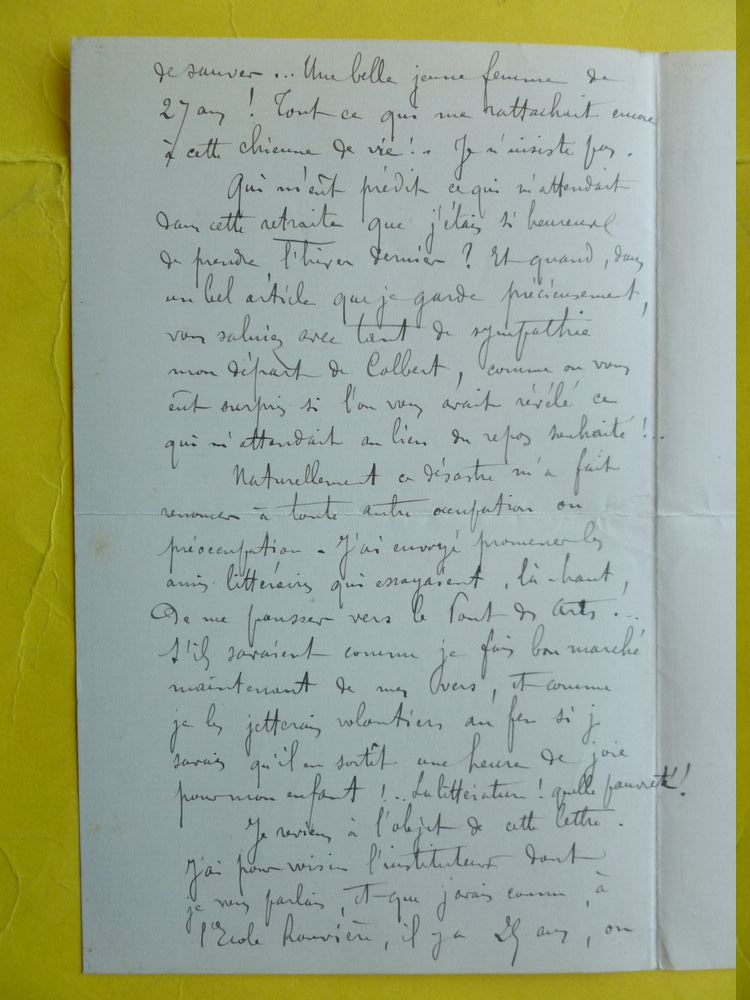 de sauver... Une belle jeune femme de
27 ans ! Tout ce qui me rattachait encore
à cette chienne de vie !.. Je n'insiste pas.
Qui m'eût prédit ce qui m'attendait
dans cette retraite que j'étais si heureux
de prendre l'hiver dernier ? Et quand, dans
un bel article que je garde précieusement,
vous saluiez avec tant de sympathie
mon départ de Colbert, comme on vous
eût surpris si l'on vous avait révélé ce
qui m'attendait au lieu du repos souhaité !..
Naturellement ce désastre m'a fait
renoncer à toute autre occupation ou
préoccupation - J'ai envoyé promener les
amis littéraires qui essayaient, là-haut,
de me pousser vers le Pont des Arts...
S'ils savaient comme je fais bon marché
maintenant de mes vers, et comme
je les jetterais volontiers au feu si je
savais qu'il en sortît une heure de joie
pour mon enfant !.. La littérature ! quelle pauvreté !
Je reviens à l'objet de cette lettre.
J'ai pour voisin l'instituteur dont
je vous parlais, et que j'avais connu, à
l'Ecole Rouvière, il y a 25 ans, on